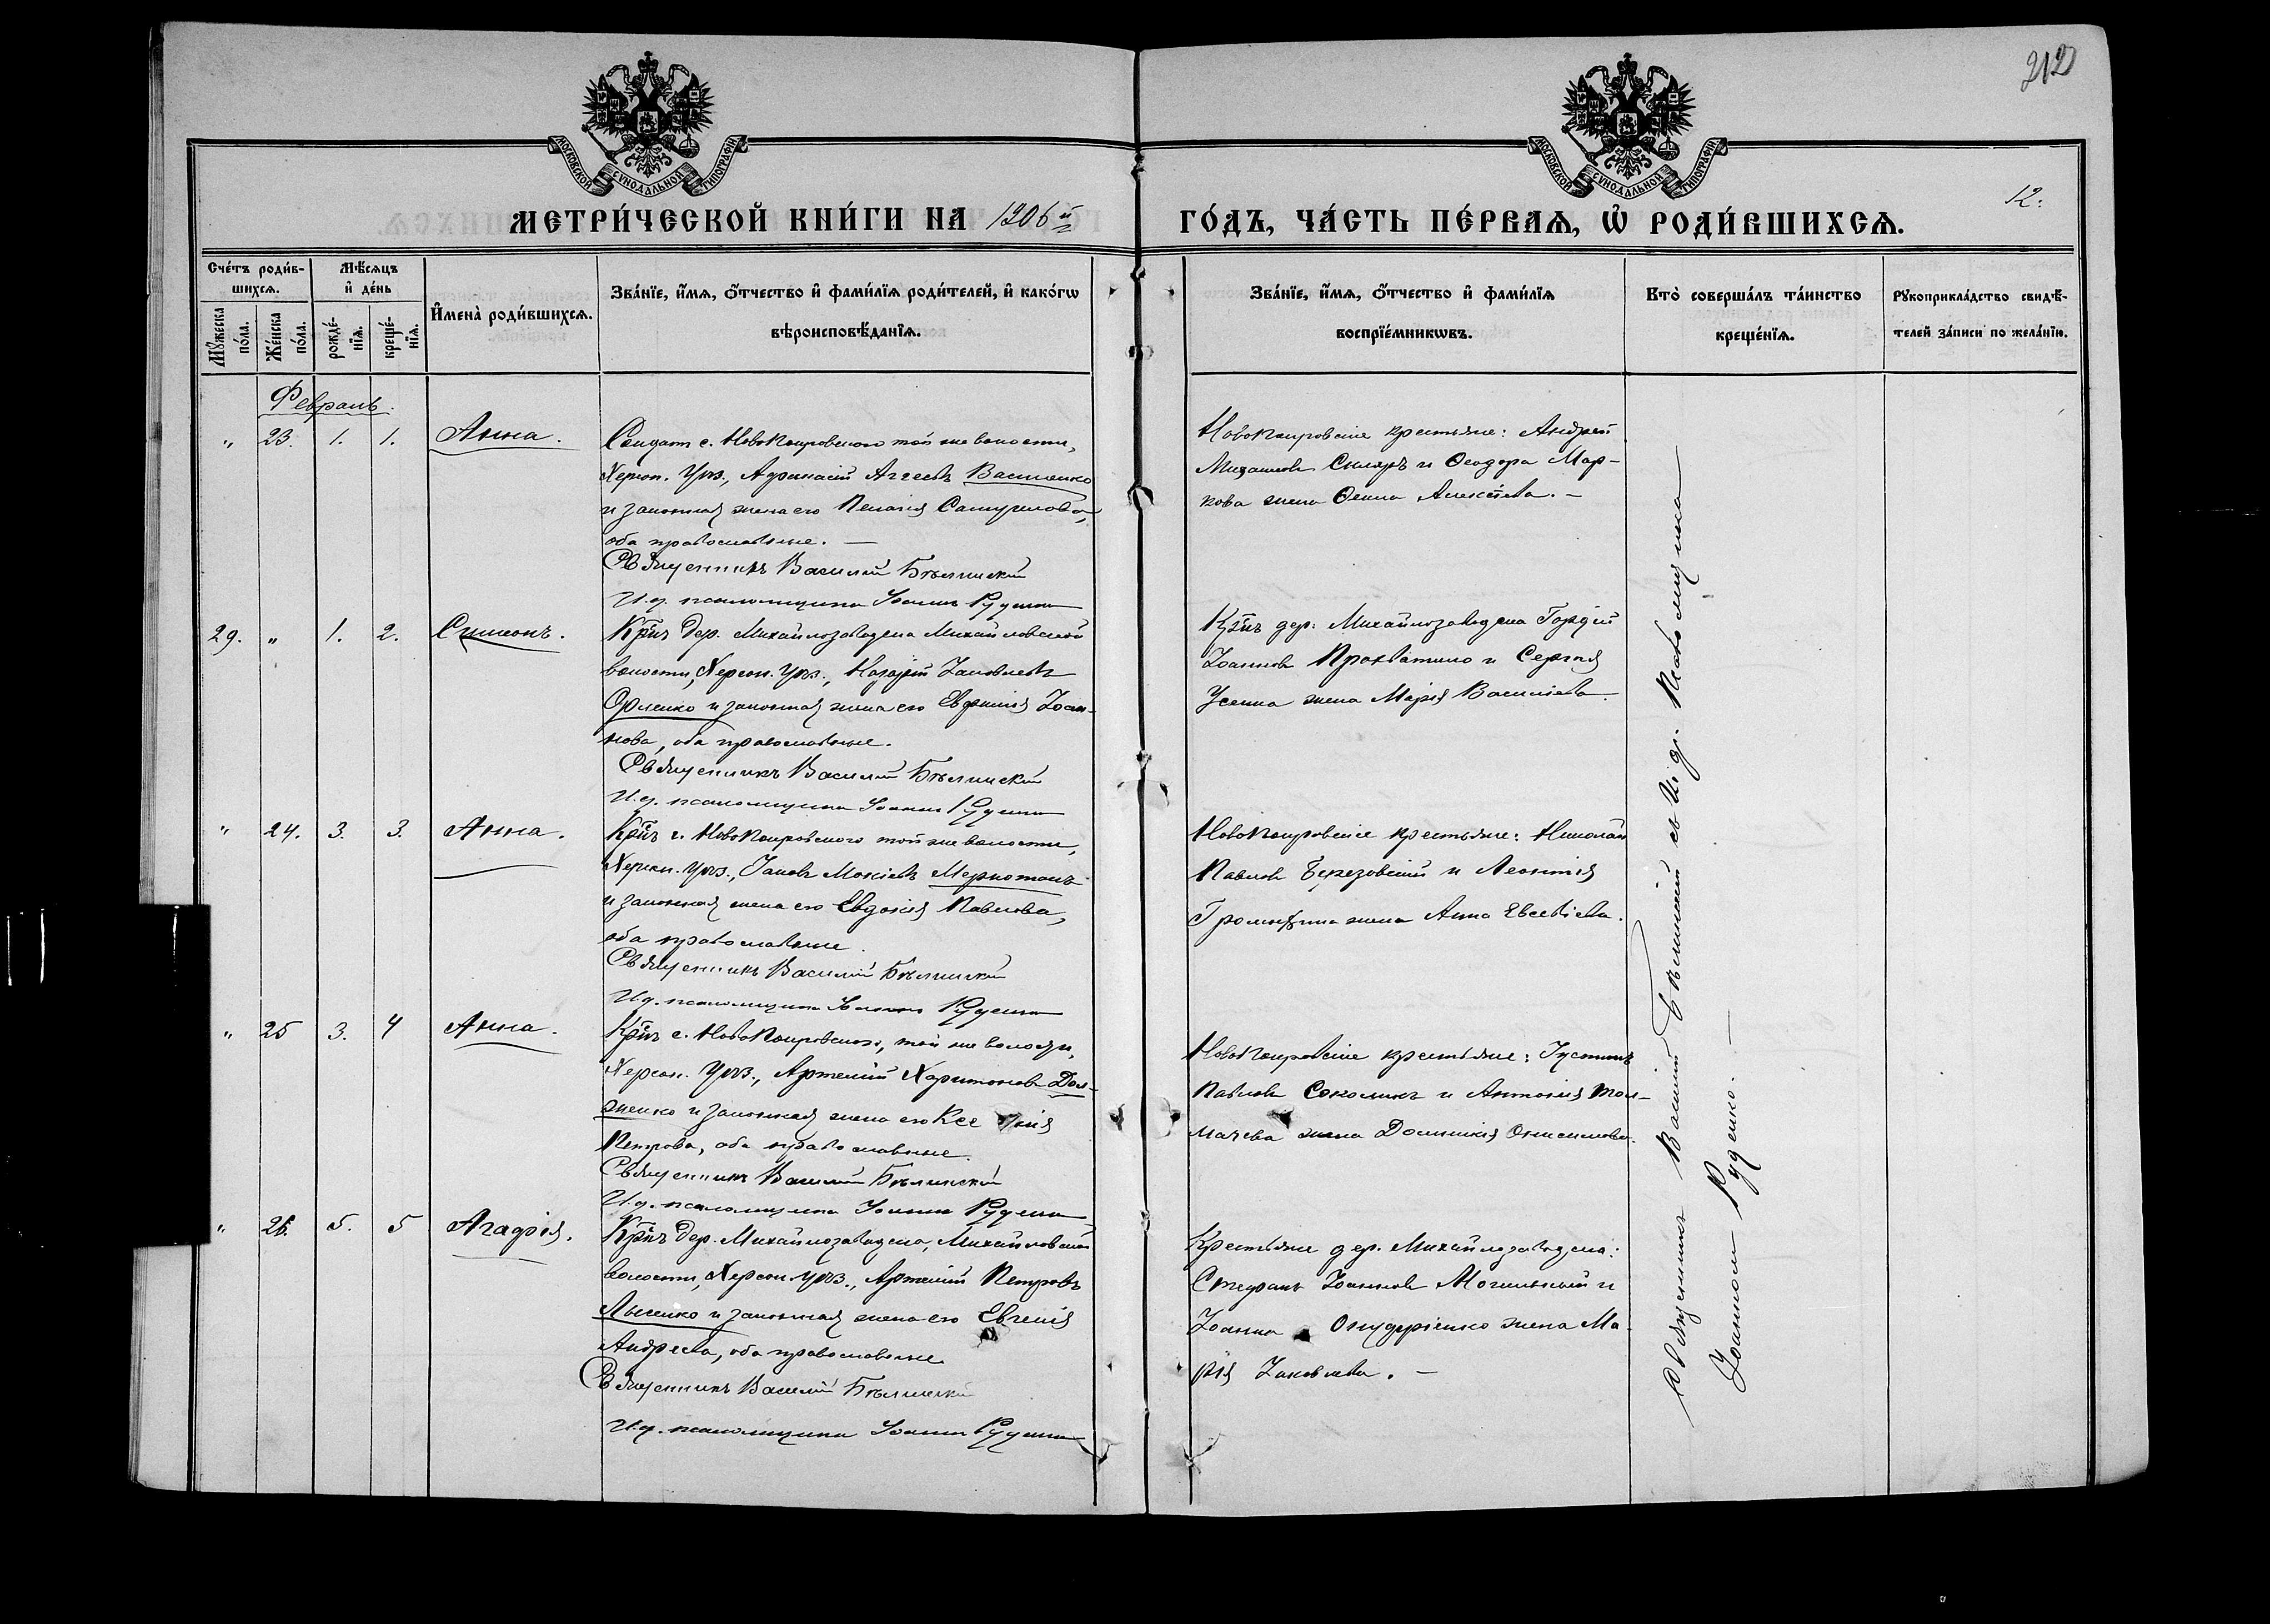 212
МОСКОВСКОЙ СѴНОДАЛЬНОЙ ТИПОГРАФІИ
МОСКОВСКОЙ СѴНОДАЛЬНОЙ ТИПОГРАФІИ
12.
МЕТРИ́ЧЕСКОЙ КНИ́ГИ НА 1906й
ГО́ДЪ, ЧА́СТЬ ПЕ́РВАѦ, Ѽ РОДИ́ВШИХСѦ.
Сче́тъ роди́в-
шихсѧ.
Мꙋ́жеска по́ла.
Же́нска по́ла.
Мѣ́сѧцъ
и҆ де́нь
рожде́-нїѧ.
креще́-нїѧ.
И҆мена̀ роди́вшихсѧ.
Зва́нїе, и҆́мѧ, ѻ҆́тчество и҆ фами́лїѧ роди́телей, и҆ како́гѡ
вѣроисповѣ́данїѧ.
Зва́нїе, и҆́мѧ, ѻ҆́тчество и҆ фами́лїѧ
воспрїе́мникѡвъ.
Кто̀ соверша́лъ та́инство
креще́нїѧ.
Рꙋкоприкла́дство свидѣ́-
телей за́писи по жела́нїю.
Февраль.
" 23. 1. 1. Анна.
Солдат с. Новопокровскаго той же волости,
Херсон. уѣз., Афанасій Агеевъ Василенко
и законная жена его Пелагія Самуилова,
оба православные. —
Священникъ Василій Бѣлинскій
И. д. псаломщика Іоаннъ Руденко
Новопокровскіе крестьяне: Андрей
Михаиловъ Скляръ и Ѳеодора Мар-
кова жена Ѳекла Алексѣева. —
29. " 1. 2. Симеонъ.
Кр̃нъ дер. Михайлозаводска Михайловской
волости, Херсон. уѣз., Назарій Іаковлевъ
Орленко и законная жена его Евфимія Іоан-
нова, оба православные.
Священникъ Василій Бѣлинскій
И. д. псаломщика Іоаннъ Руденко
Кр̃нъ дер. Михайлозаводска Гордій
Іоанновъ и Сергія
Усенка жена Марія Василіева.
" 24. 3. 3. Анна.
Кр̃нъ с. Новопокровскаго той же волости,
Херсон. уѣз., Іаковъ Моисеевъ
и законная жена его Евдокія Павлова,
оба православные.
Священникъ Василій Бѣлинскій
И. д. псаломщика Іоаннъ Руденко
Новопокровскіе крестьяне: Николай
Павловъ Березовскій и Леонтія
жена Анна Евсевіева.
" 25 3. 4 Анна.
Кр̃нъ с. Новопокровскаго, той же волости,
Херсон. уѣз., Артемій Харитоновъ Дол-
женко и законная жена его Ксенія
Петрова, оба православные.
Священникъ Василій Бѣлинскій
И. д. псаломщика Іоаннъ Руденко
Новопокровскіе крестьяне: Іустинъ
Павловъ Соколикъ и Антонія Тол-
мачева жена Домникія Онисимова.
" 26. 5. 5 Агафія.
Кр̃нъ дер. Михайлозаводска, Михайловской
волости, Херсон. уѣз., Артемій Петровъ
Лысенко и законная жена его Евгенія
Андреева, оба православные
Священникъ Василій Бѣлинскій
И. д. псаломщика Іоаннъ Руденко
Крестьяне дер. Михайлозаводска:
Стефанъ Іоанновъ Могильный и
Іоанна Онуфріенко жена Ма-
рія Іаковлева. —
Священникъ Василій Бѣлинскій съ И. д. Псаломщика
Іоанномъ Руденко. —